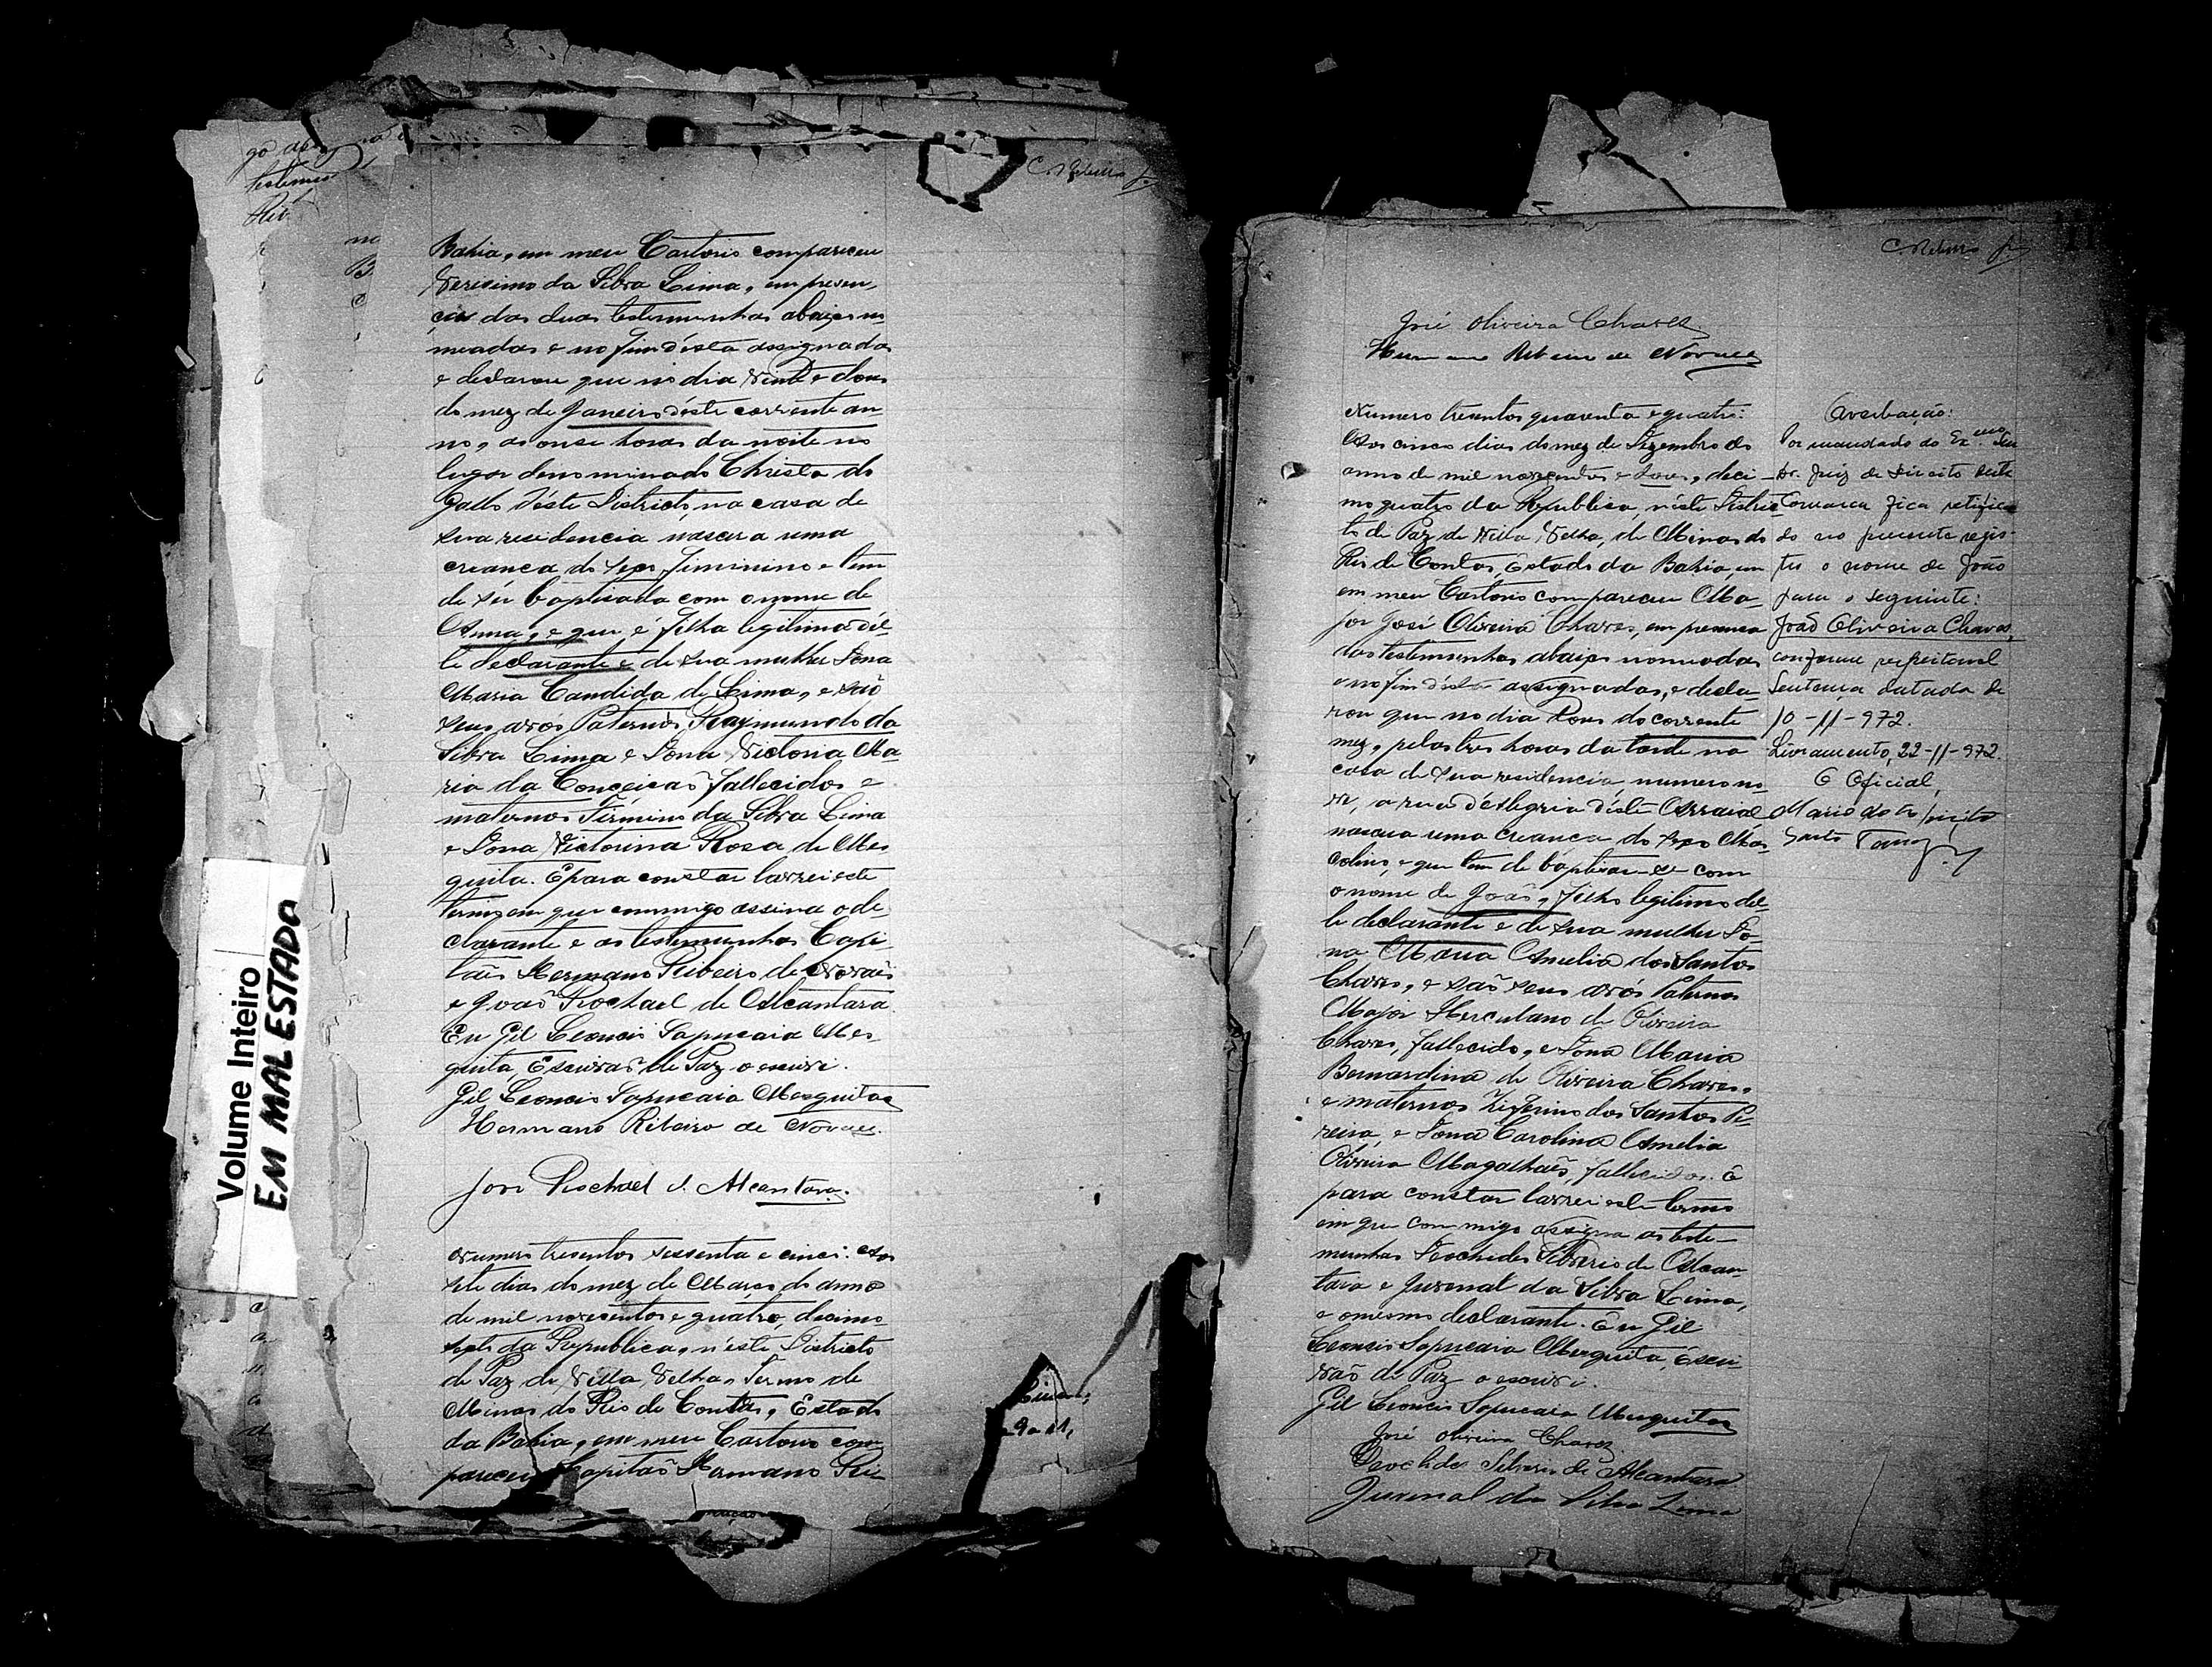 Volume Inteiro
EM MAL ESTADO
Bahia, em meu Cartorio compareceu
Verissimo da Silva Lima, em presen,
cia das duas testemunhas abaixo no
meadas e no fim désta assignadas
e declarou que no dia Vinte e dous
do mez de Janeiro déste corrente an
no, as onse horas da noite no
lugar denominado Christa do
Gallo déste Districto, na casa de
sua residencia nascera uma
creanca do sexo feminino e tem
de sér baptisada com o nome de
Anna, e que é filha legitima dél-
le declarante e de sua mulher Dona
Maria Candida de Lima, e saõ
seus avos Paternos Raymundo da
Silva Lima e Dona Victoria Ma-
ria da Conçeicaõ fallecidos e
maternos Firmino da Silva Lima
e Dona Victorina Rosa de Mes
quita. E para constar lavrei este
termo em que commigo assina o de-
clarante e as testemunhas Capi-
taõ Hermano Ribeiro de Novaes
e Joaõ Rochael de Alcantara
Eu Gil Leoncio Sapucaia Mes-
quita, Escrivaõ de Paz o escrevi.
Gil Leoncio Sapucaia Mesquita
Hermano Ribeiro de Novaes.
Joaõ Rochael d. Alcantara.
Numero tresentos sessenta e cinco: Aos
sete dias do mez de Março do anno
de mil novecentos e quatro, decimo
da Republica, n'éste Districto
de Paz de Villa Velha, Termo de
Minas do Rio de Contas, Estado
da Bahia, em meu Cartorio com
pareceu Capitaõ Hermano Ri
José Oliveira Chaves
Hermano Ribeiro de Novaes
Numero tresentos quarenta e quatro:
Aos cinco dias do mez de Dezembro do
anno de mil novecentos e dous, deci-
mo quatro da Republica, néste Distric
to de Paz de Villa Velha, de Minas do
Rio de Contas, Estado da Bahia, em
em meu Cartorio compareceu Ma-
jor José Oliveira Chaves, em presenca
das testemunhas abaixo nomeadas
e no fim désta assignadas, e decla
rou que no dia Dous do corrente
mez, pelas tres horas da tarde na
casa de sua residencia, numero no
ve, a rua d'Alegria déste Arraial
nasceu uma creanca do sexo Mas-
colino, e que tem de baptisar-se com
o nome de Joaõ, filho legitimo del-
le declarante e de sua mulher Do-
na Maria Amelia dos Santos
Chaves, e saõ seus avós Paternos
Major Herculano de Oliveira
Chaves, fallecido, e Dona Maria
Bernardina de Oliveira Chaves,
e maternos Zeferino dos Santos Pe-
reira, e Dona Carolina Amelia
Oliveira Magalhaẽs, fallecidos. E
para constar lavrei este termo
em que commigo assigna as teste-
munhas Deoclides Silverio de Alcan-
tara e Juvenal da Silva Lima,
e o mesmo declarante. Eu Gil
Leoncio Sapucaia Mesquita, Escri-
vaõ de Paz o escrevi.
Gil Leoncio Sapucaia Mesquita
José Oliveira Chaves
Deoclides Silverio de Alcantara
Juvenal da Silva Lima
Averbação:
Por mandado do Exmo. Snr
Dr. Juiz de Direito desta
Comarca fica retifica
do no presente regis-
tro o nome de João
para o seguinte:
João Oliveira Chaves,
conforme respeitavel
Sentença datada de
10-11-972.
Livramento, 22-11-972.
O Oficial,